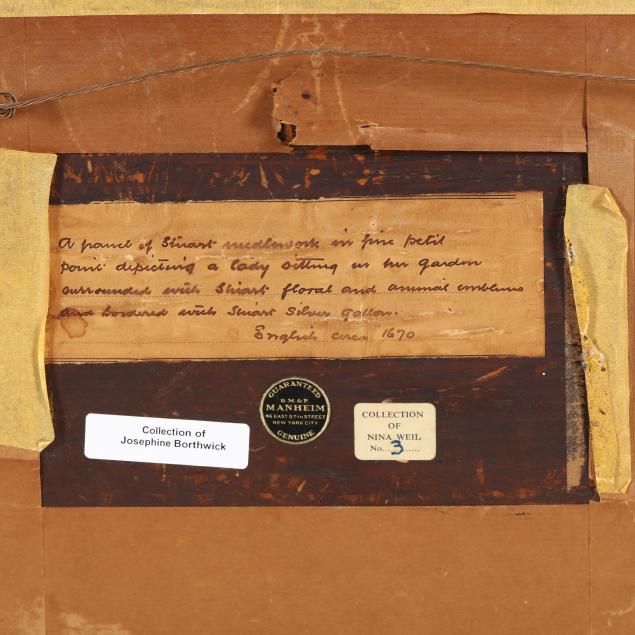 A panel of Stuart needlework in fine petit
point depicting a lady sitting in her garden
surrounded with Stuart floral and animal emblems
and bordered with Stuart Silver gallon.
English circa 1670
GUARANTEED
D.M.& P.
MANHEIM
46 EAST 57TH STREET
NEW YORK CITY
GENUINE
COLLECTION
OF
NINA WEIL
No...3......
Collection of
Josephine Borthwick